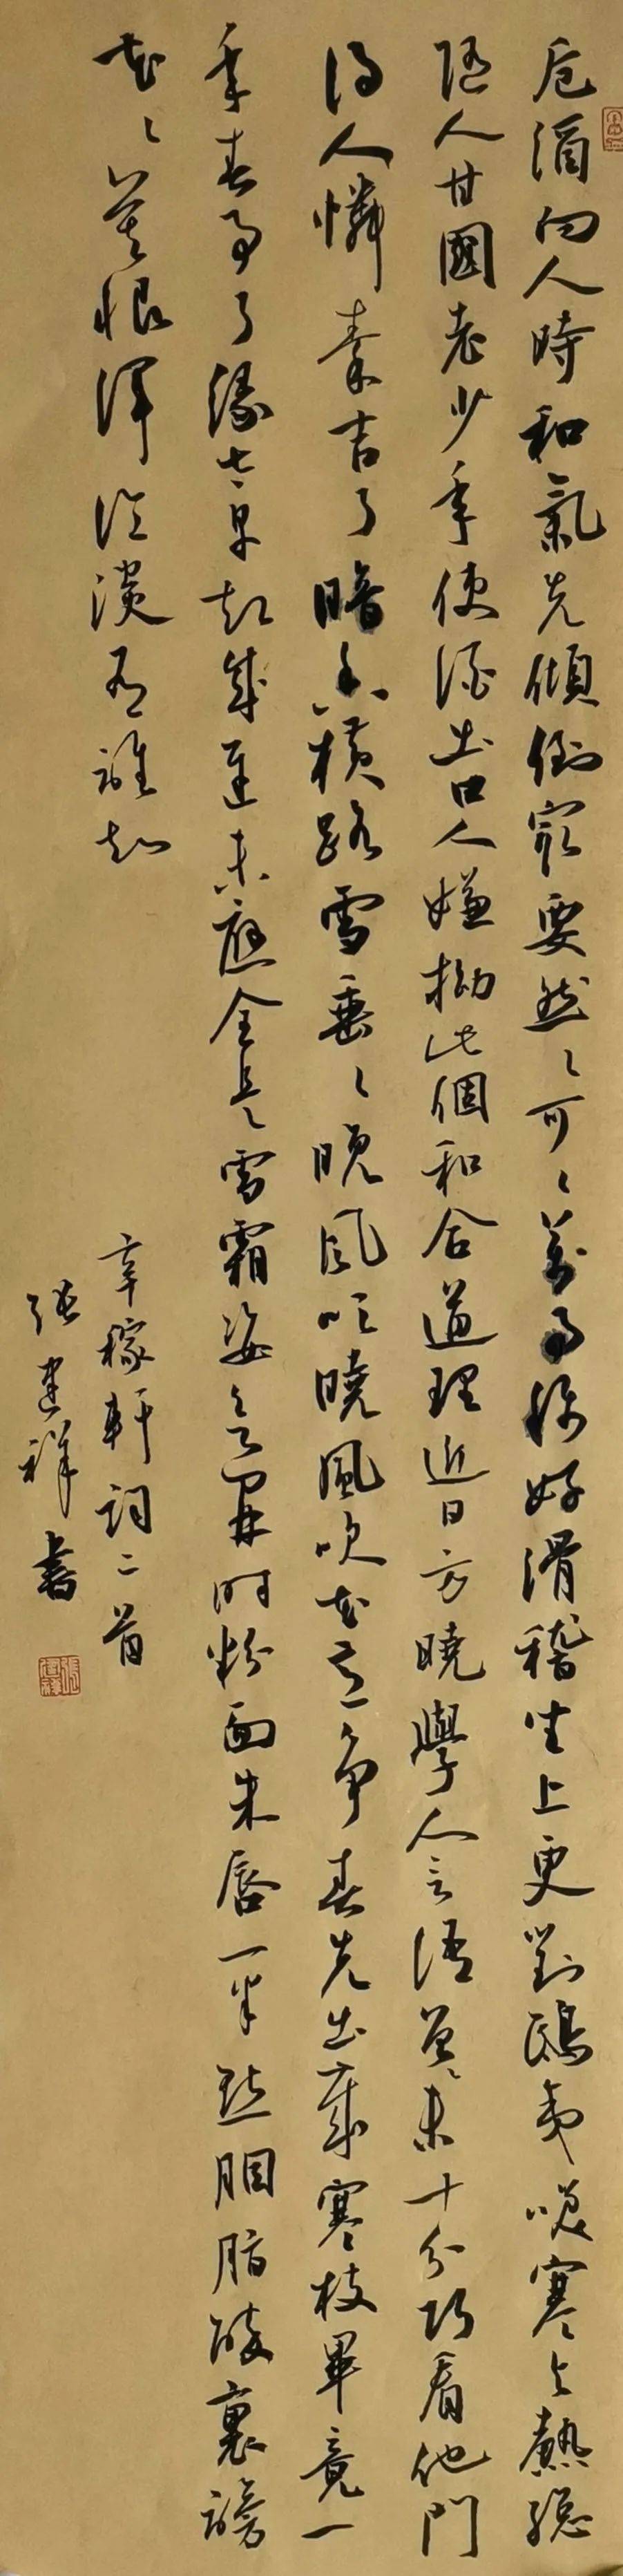 卮酒向人時和氣先傾倒最要然〻可〻萬事稱好滑稽坐上更對鴟夷笑寒與熱總
隨人甘國老少年使酒出口人嫌拗此個和合道理近日方曉學人言語會未十分巧看他門
得人憐秦吉了暗香橫路雪垂〻晚風吹曉風吹花意爭春先出歲寒枝畢竟一
年春事了緣太早却成遲未應全是雪霜姿欲開時粉面朱唇一半點胭脂醉裏謗
花〻莫恨渾冷淡有誰知
辛稼軒詞二首
張建祥書